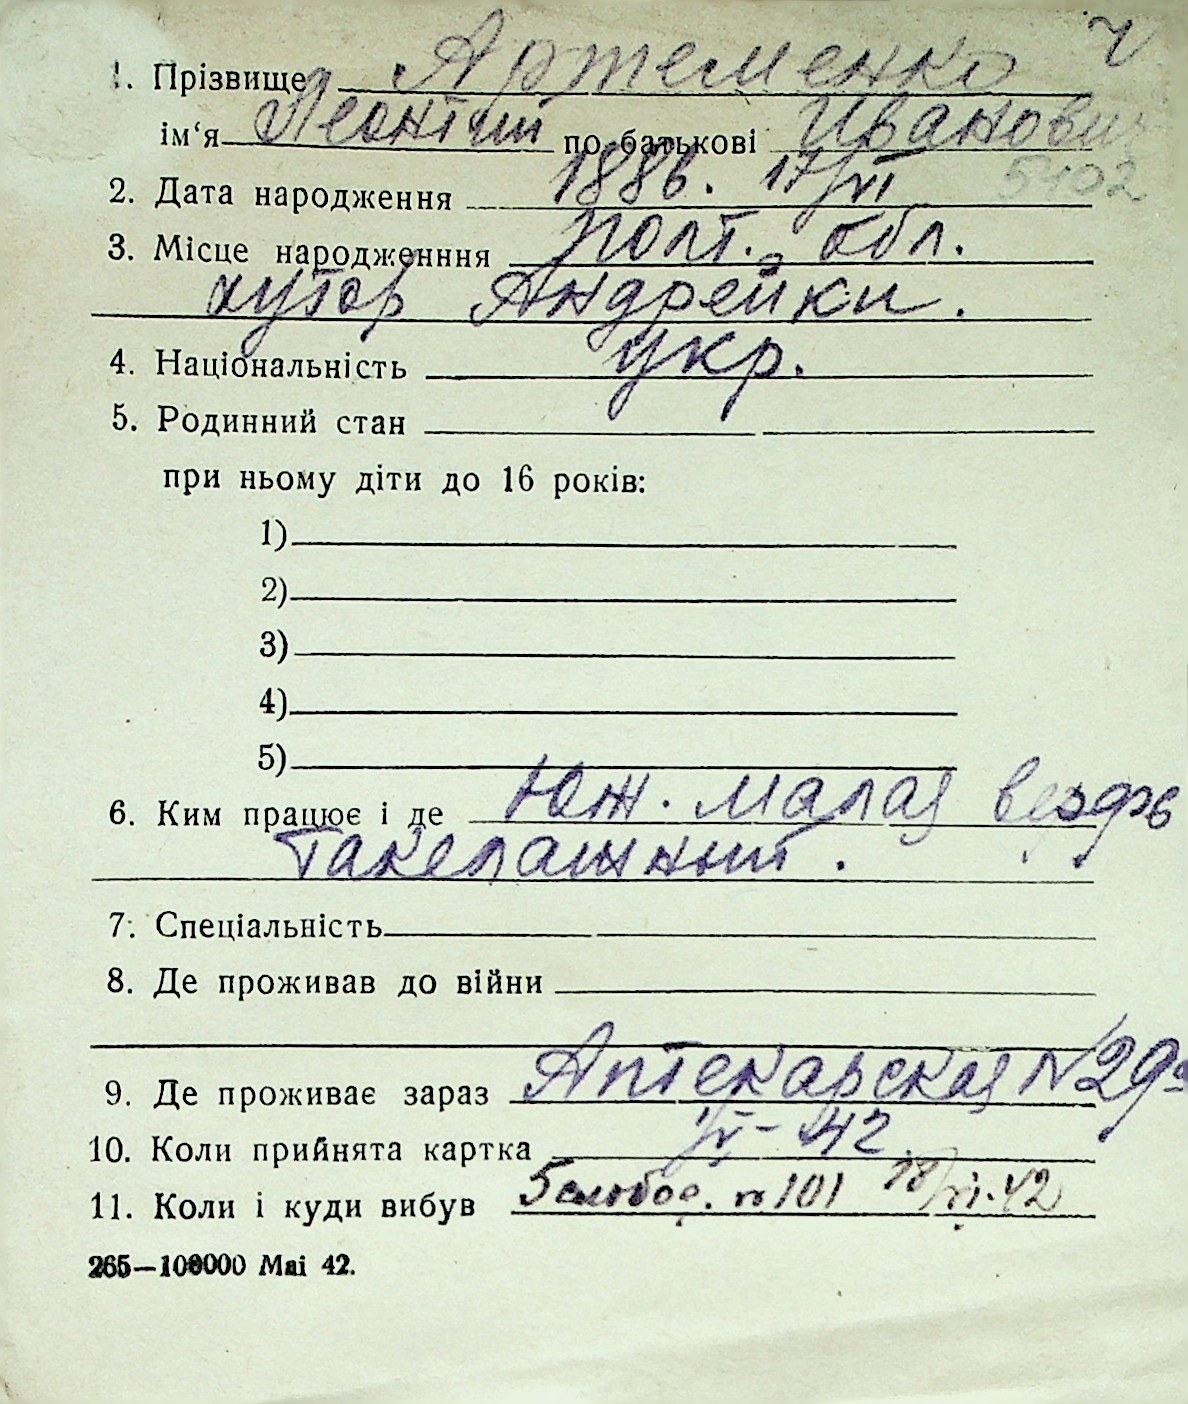 1. Прізвище Артеменко
ім‘я Леонтий по батькові Иванович
5402
2. Дата народження 1886. 17/VI
3. Місце народженння Полт. обл.
хутор Андрейки.
4. Національність укр.
5. Родинний стан
при ньому діти до 16 років:
1)
2)
3)
4)
5)
6. Ким працює і де Юж. Малая верфь
такелажный.
7. Спеціальність
8. Де проживав до війни
9. Де проживає зараз Аптекарская N 29
10. Коли прийнята картка 42
11. Коли і куди вибув 5 слобод. N 101 18/XI-42
265—100000 Mai 42.